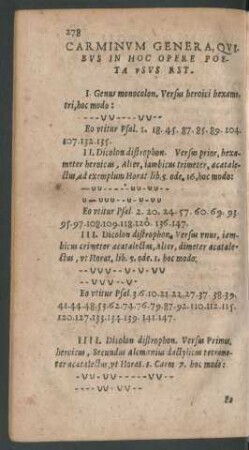 278
CARMINVM GENERA, QVI-
BVS IN HOC OPERE POE-
TA VSVS EST.
I. Genus monocolon. Versus heroici hexame-
tri, hoc modo:
Eo vtitur Psal. 1. 18. 45. 87. 85. 89. 104.
107. 132. 135.
II. Dicolon distrophon. Versus prior, hexa-
meter heroicus, Alter, iambicus trimeter, acatale-
ctus, ad exemplum Horat lib. 5. ode, 16, hoc modo:
Eo vtitur Psal. 2. 20. 24. 57. 60. 69. 93.
95. 97. 108. 109. 118. 120. 136. 147.
III. Dicolon distrophon. Versus vnus, iam-
bicus trimeter acatalectus, Alter, dimeter acatale-
ctus, vt Horat. lib. 5. ode. 1. hoc modo:
Eo vtitur Psal. 3. 6. 10. 21. 22. 27. 37. 38. 39.
41. 44. 48. 53. 62. 74. 76. 79. 87. 92. 110. 112. 115.
120. 127. 133. 134. 139. 141. 147.
IIII. Dicolon distrophon. Versus Primus,
heroicus, Secundus Alcmanius dactylicus tetrame-
ter acatalectus, vt Horat. 1. Carm 7. hoc modo:
Eo